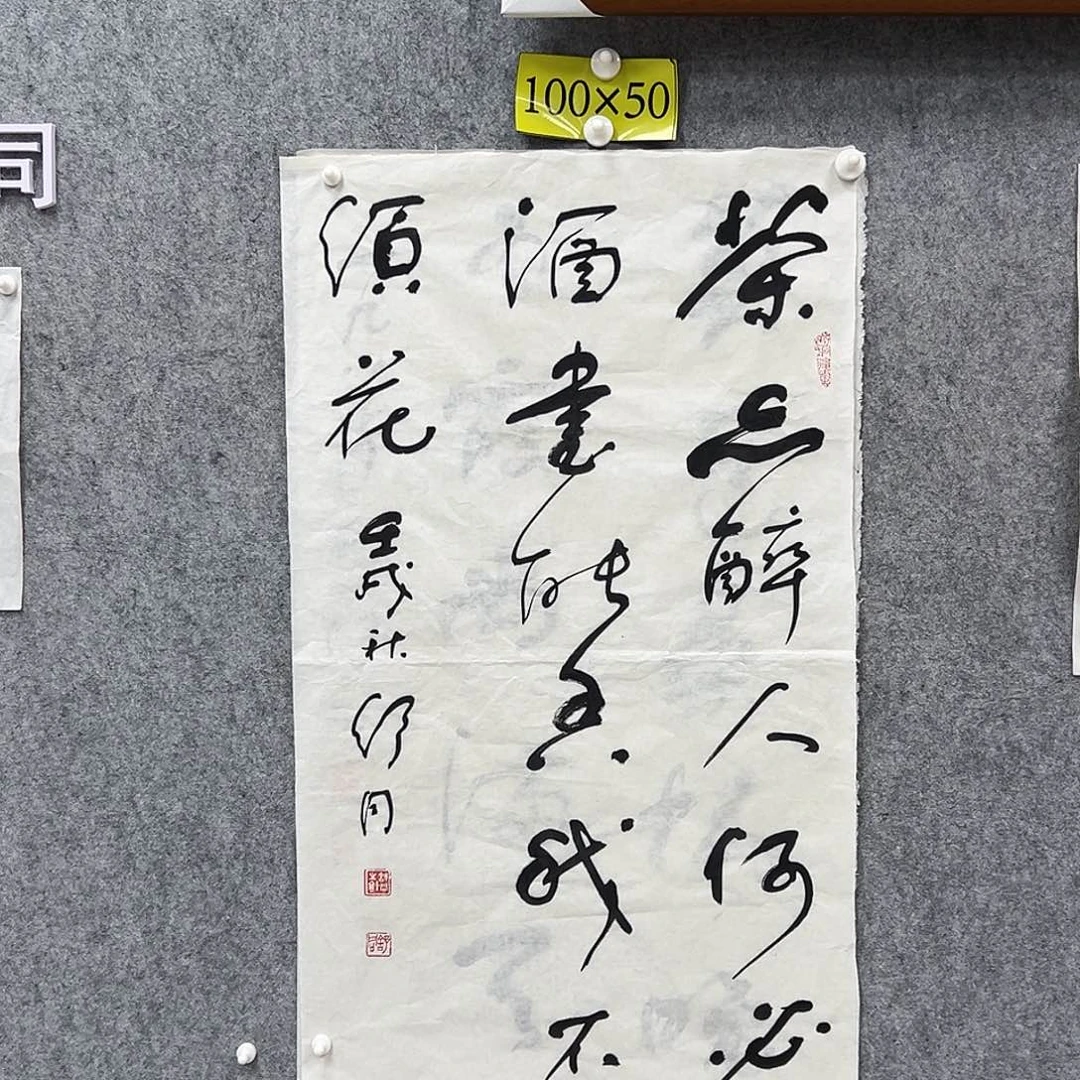 100×50
茶亦醉人何必
酒書能香我不
須花 壬戌秋 舒同